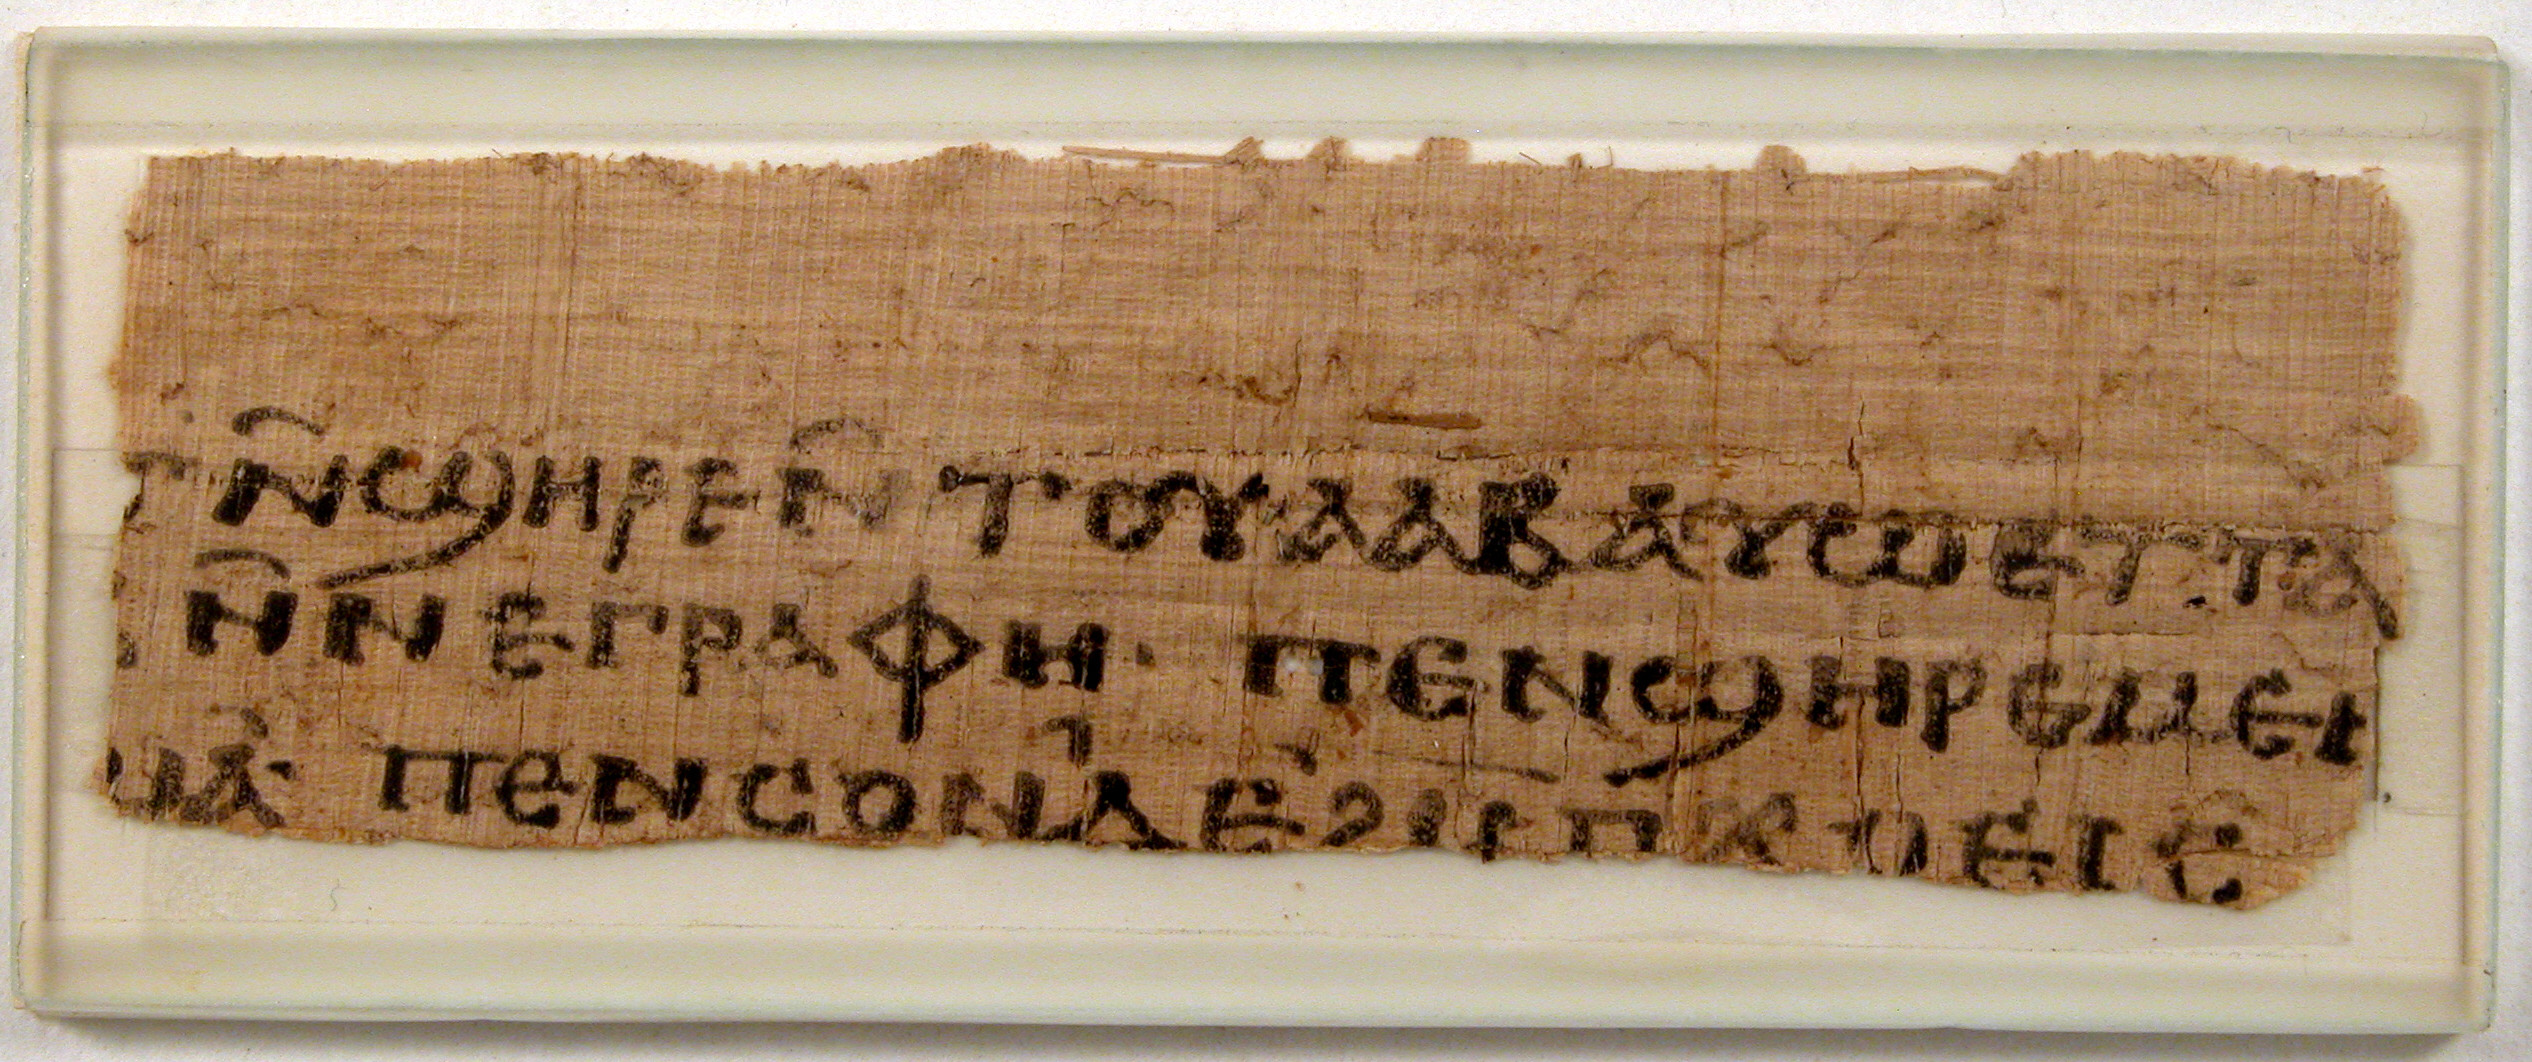 ⲧⲛ̄ϣⲏⲣⲉⲛ̄ⲧⲟⲩⲁⲁⲃⲁⲩⲱⲉⲧⲧⲁ
ⲛ̄ⲛⲉⲅⲣⲁⲫⲏ· ⲡⲉⲛϣⲏⲣⲉⲙⲉⲓ
ⲙⲁ· ⲡⲉⲛⲥⲟⲛⲇⲉϩⲙⲡϫⲟⲉⲓⲥ